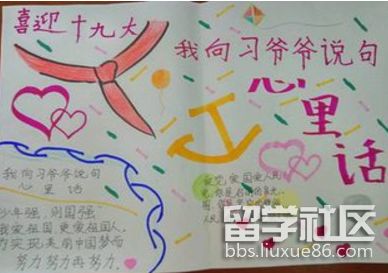 喜迎十九大
我向习爷爷说句
心里话
我向习爷爷说句
心里话
少年强，则国强
我爱祖国更爱祖国人，
为实现美丽中国梦而
努力努力再努力。
留学社区
bbs.liuxue86.com